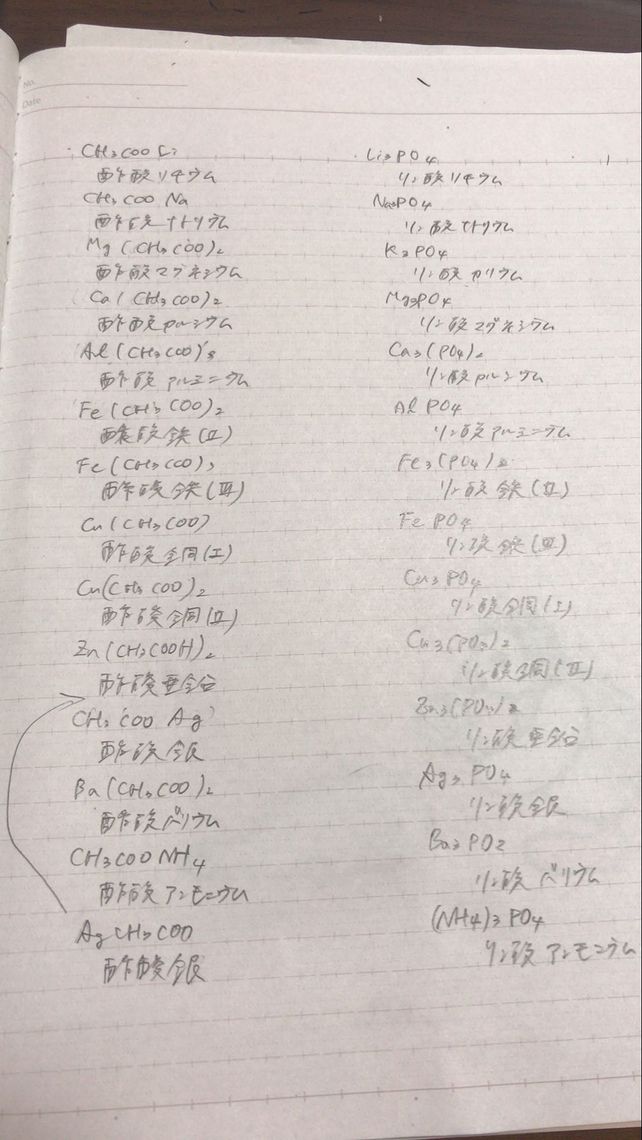 No.
Date
CH3COOLi
酢酸リチウム
CH3COONa
酢酸ナトリウム
Mg(CH3COO)2
酢酸マグネシウム
Ca(CH3COO)2
酢酸カルシウム
Al(CH3COO)3
酢酸アルミニウム
Fe(CH3COO)2
酢酸鉄(II)
Fe(CH3COO)3
酢酸鉄(III)
Cu(CH3COO)
酢酸銅(I)
Cu(CH3COO)2
酢酸銅(II)
Zn(CH3COOH)2
酢酸亜鉛
CH3COOAg
酢酸銀
Ba(CH3COO)2
酢酸バリウム
CH3COONH4
酢酸アンモニウム
AgCH3COO
酢酸銀
Li3PO4
リン酸リチウム
Na3PO4
リン酸ナトリウム
K3PO4
リン酸カリウム
Mg3PO4
リン酸マグネシウム
Ca3(PO4)2
リン酸カルシウム
AlPO4
リン酸アルミニウム
Fe3(PO4)2
リン酸鉄(II)
FePO4
リン酸鉄(III)
Cu3PO4
リン酸銅(I)
Cu3(PO4)2
リン酸銅(II)
Zn3(PO4)2
リン酸亜鉛
Ag3PO4
リン酸銀
Ba3PO2
リン酸バリウム
(NH4)3PO4
リン酸アンモニウム